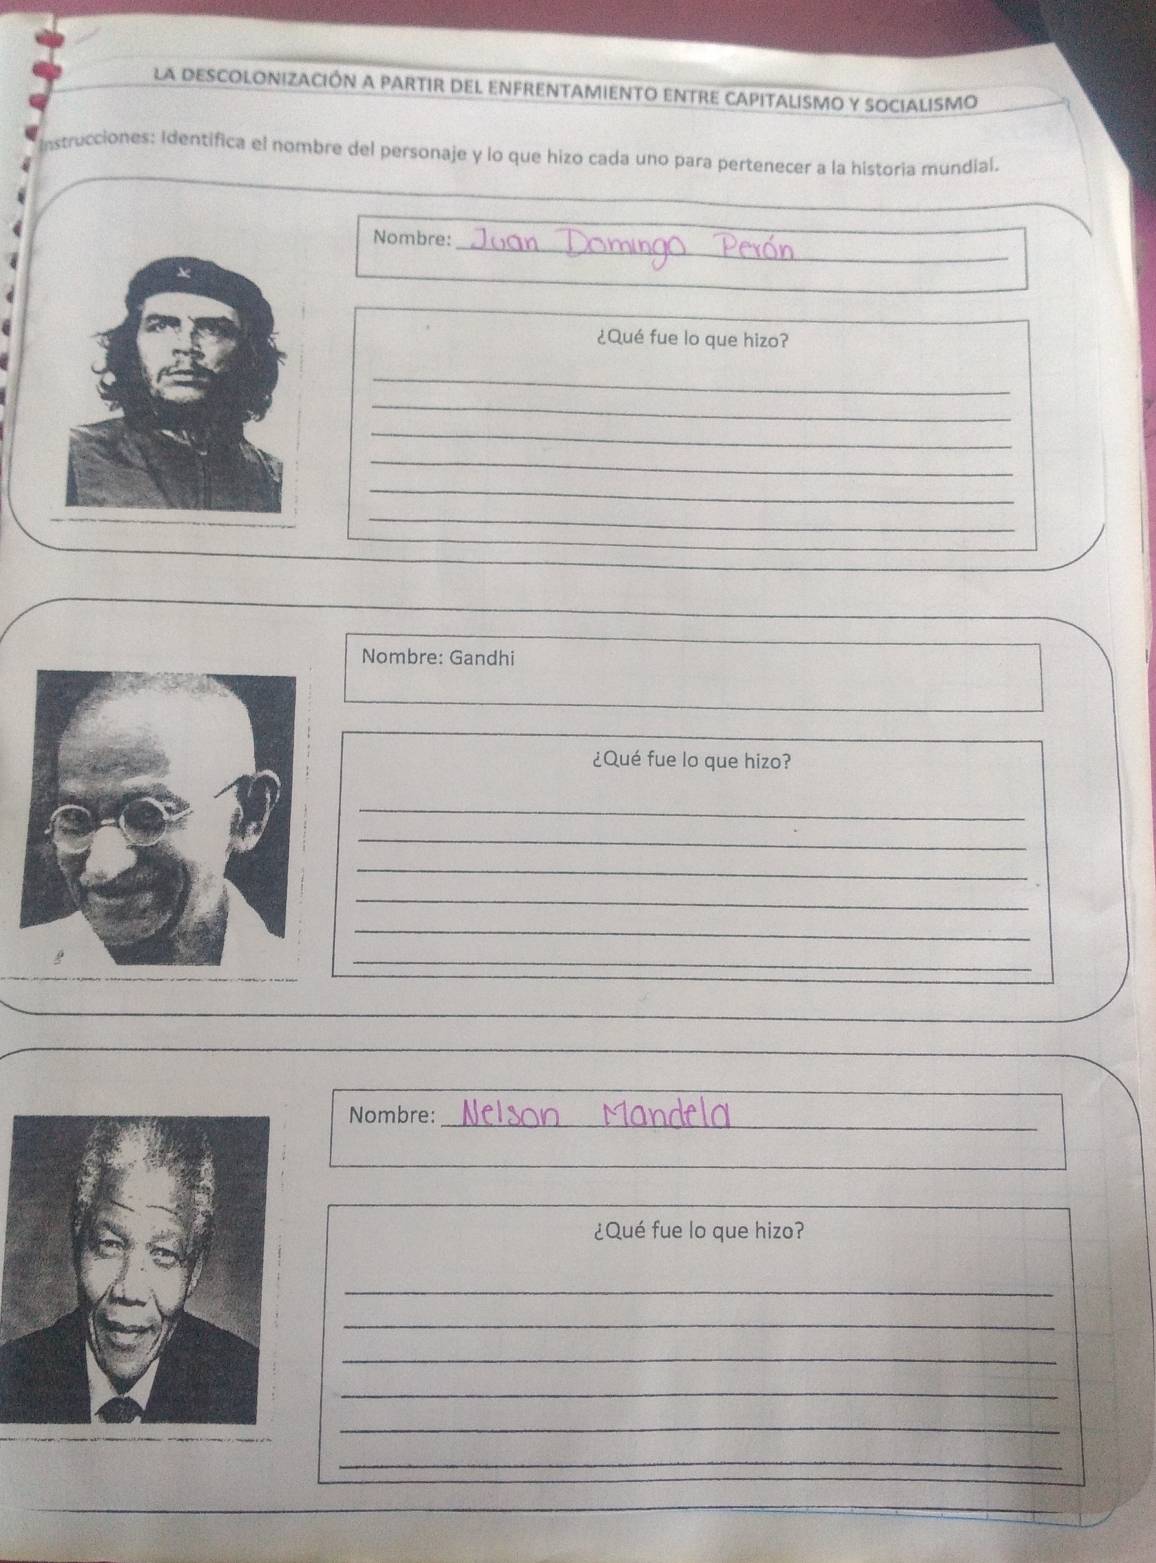 LA DESCOLONIZACIÓN A PARTIR DEL ENFRENTAMIENTO ENTRE CAPITALISMO Y SOCIALISMO
Instrucciones: Identifica el nombre del personaje y lo que hizo cada uno para pertenecer a la historia mundial.
Nombre: Juan Domingo Perón
¿Qué fue lo que hizo?
Nombre: Gandhi
¿Qué fue lo que hizo?
Nombre: Nelson Mandela
¿Qué fue lo que hizo?